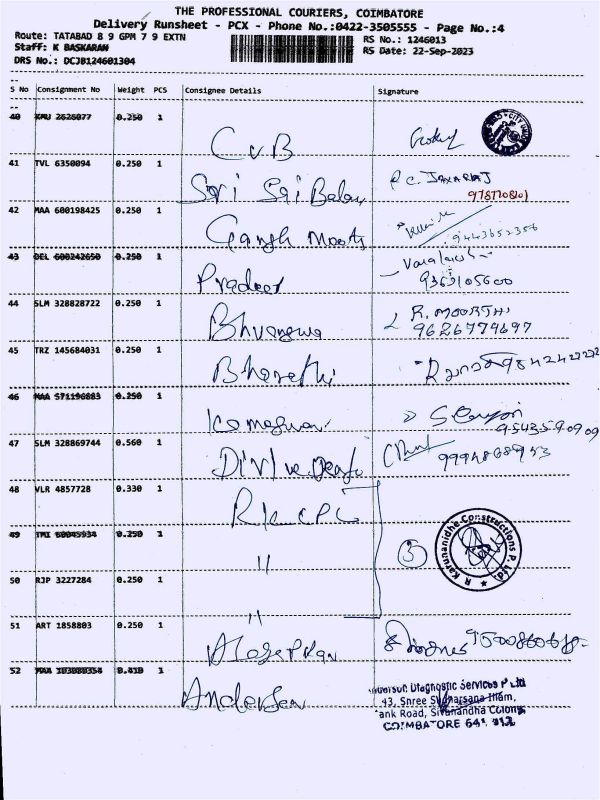 THE PROFESSIONAL COURIERS, COIMBATORE
Delivery Runsheet - PCX - Phone No.:0422-3505555 - Page No.:4
Route: TATABAD 8 9 GPM 7 9 EXTN
RS No.: 1246013
Staff: K BASKARAN
RS Date: 22-Sep-2023
DRS No.: DCJB124601304
S No Consignment No Weight PCS Consignee Details Signature
40 KMU 2626077 0.250 1 CVB
41 TVL 6350094 0.250 1 Sri Sai Balaji P.C. JAYARAJ
42 MAA 600198425 0.250 1 Ganesh Moorthy
9443652356
43 DEL 600242650 0.250 1 Pradeep
9363105600
44 SLM 328828722 0.250 1 R. MOORTHI
9626779697
45 TRZ 145684031 0.250 1 Bharathi
46 MAA 571196883 0.250 1
47 SLM 328869744 0.560 1
48 VLR 4857728 0.330 1 R K CPL
49 TMI 60045934 0.250 1 "
5
R Karunanidhe Constructions P. Ltd.
50 RJP 3227284 0.250 1 "
51 ART 1858803 0.250 1 Alagappan
52 0.410 1 Andersen
Diagnostic Services P Ltd
43, Shree Sudharsana Illam,
ank Road, Sivanandha Colony
COIMBATORE 641 012